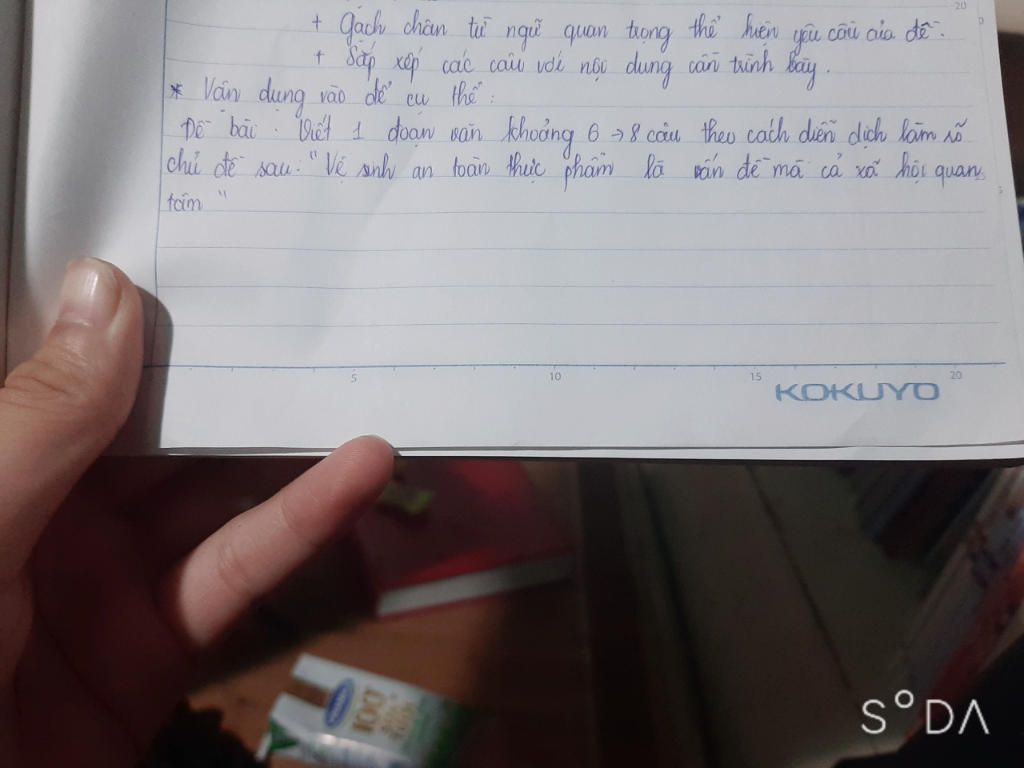 + Gạch chân từ ngữ quan trọng thể hiện yêu cầu của đề.
+ Sắp xếp các câu với nội dung cần trình bày.
* Vận dụng vào đề cụ thể:
Đề bài: Viết 1 đoạn văn khoảng 6 → 8 câu theo cách diễn dịch làm rõ
chủ đề sau: "Vệ sinh an toàn thực phẩm là vấn đề mà cả xã hội quan
tâm"
5 10 15 20
KOKUYO
100%
S°DA